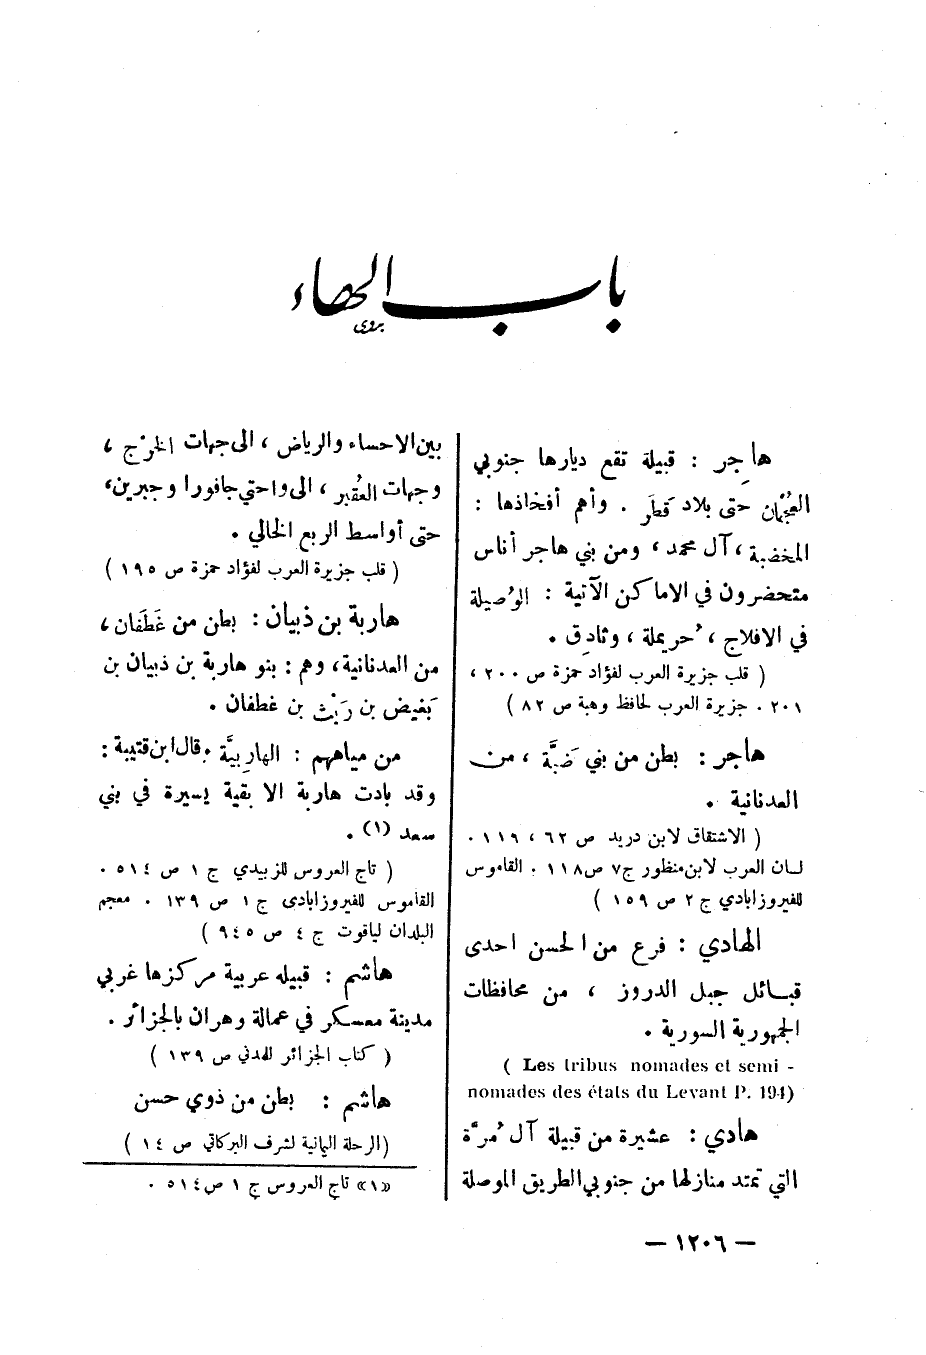 باب الهاء
هاجِر : قبيلة تقع ديارها جنوبي
العُجْمان حتى بلاد قَطَر . وأهم أفخاذها :
المخضبة ، آل محمد ، ومن بني هاجر أناس
متحضرون في الاماكن الآتية : الوُصيلة
في الافلاج ، حُريملة ، وثادِق .
( قلب جزيرة العرب لفؤاد حمزة ص ٢٠٠ ،
٢٠١ . جزيرة العرب لحافظ وهبة ص ٨٢ )
هاجر : بطن من بني ضَبَّة ، من
العدنانية .
( الاشتقاق لابن دريد ص ٦٢ ، ١١٩ .
لسان العرب لابن منظور ج٧ ص١١٨ . القاموس
للفيروزابادي ج ٢ ص ١٥٩ )
الهادي : فرع من الحسن احدى
قبائل جبل الدروز ، من محافظات
الجمهورية السورية .
( Les tribus nomades et semi -
nomades des états du Levant P. 194)
هادي : عشيرة من قبيلة آل مُرَّة
التي تمتد منازلها من جنوبي الطريق الموصلة
بين الاحساء والرياض ، الى جهات الخَرْج ،
وجهات العُقير ، الى واحتي جافورا وجبرين ،
حتى أواسط الربع الخالي .
( قلب جزيرة العرب لفؤاد حمزة ص ١٩٥ )
هاربة بن ذبيان : بطن من غَطَفان ،
من العدنانية ، وهم : بنو هاربة بن ذبيان بن
بَغيض بن رَيْث بن غطفان .
من مياههم : الهارِبيَّة . قال ابن قتيبة :
وقد بادت هاربة الا بقية يسيرة في بني
سعد (١) .
( تاج العروس للزبيدي ج ١ ص ٥١٤ .
القاموس للفيروزابادى ج ١ ص ١٣٩ . معجم
البلدان لياقوت ج ٤ ص ٩٤٥ )
هاشم : قبيله عربية مركزها غربي
مدينة معسكر في عمالة وهران بالجزائر .
( كتاب الجزائر للمدني ص ١٣٩ )
هاشم : بطن من ذوي حسن
(الرحلة اليمانية لشرف البركاتي ص ١٤ )
«١» تاج العروس ج ١ ص ٥١٤ .
— ١٢٠٦ —